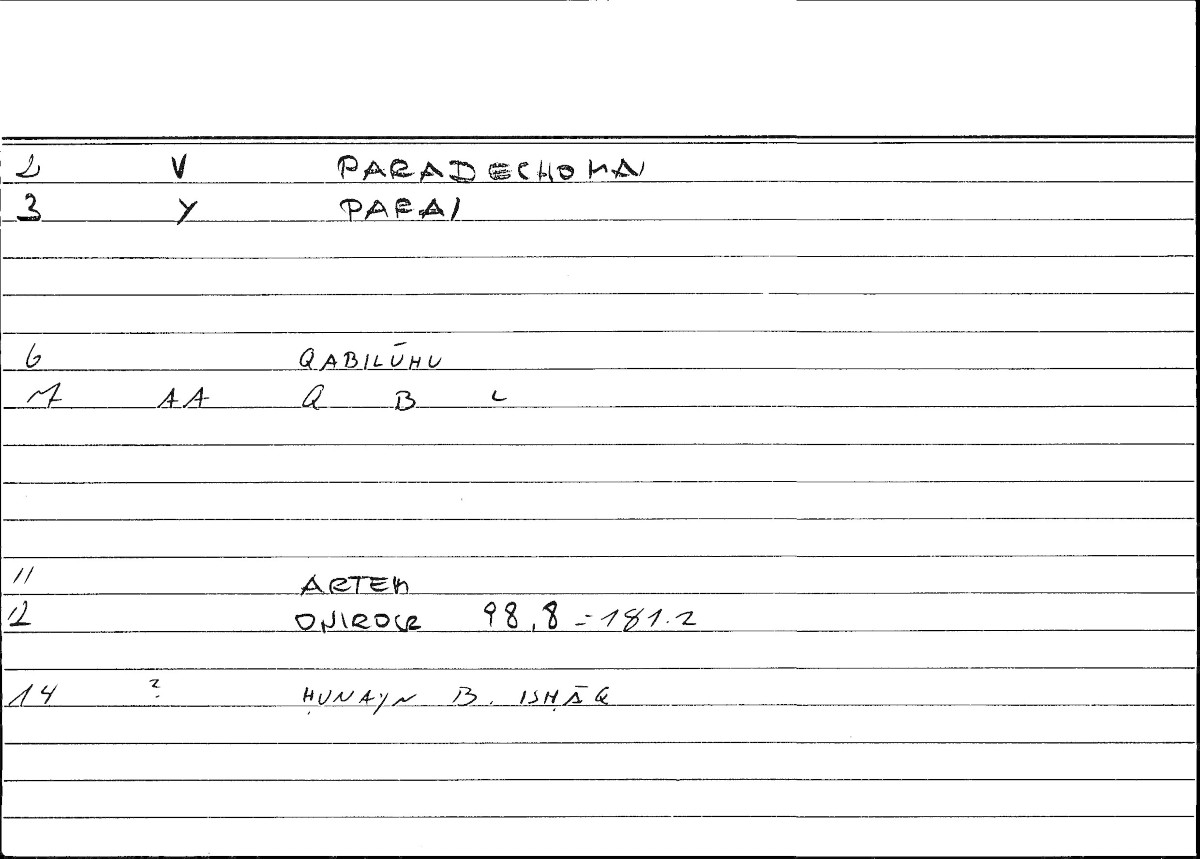 2 V PARADECHOMAI
3 Y PARAI
6 QABILŪHU
7 AA Q B L
11 ARTEM
12 ONIROCR 98,8 = 181.2
14 ? ḤUNAYN B. ISḤĀQ